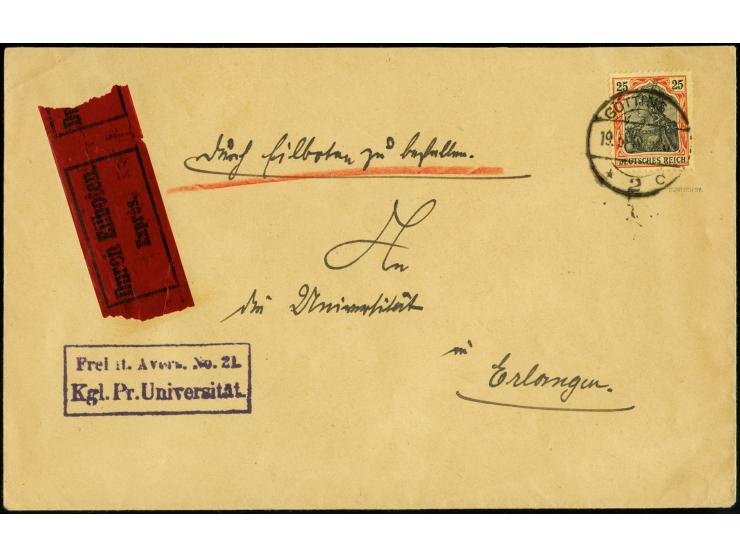 25 25
GÖTTING
19.
DEUTSCHES REICH
* 2 c
Durch Eilboten zu bestellen.
Durch Eilboten.
Exprès.
An
die Universität
in
Erlangen.
Frei lt. Avers. No. 21.
Kgl. Pr. Universität.